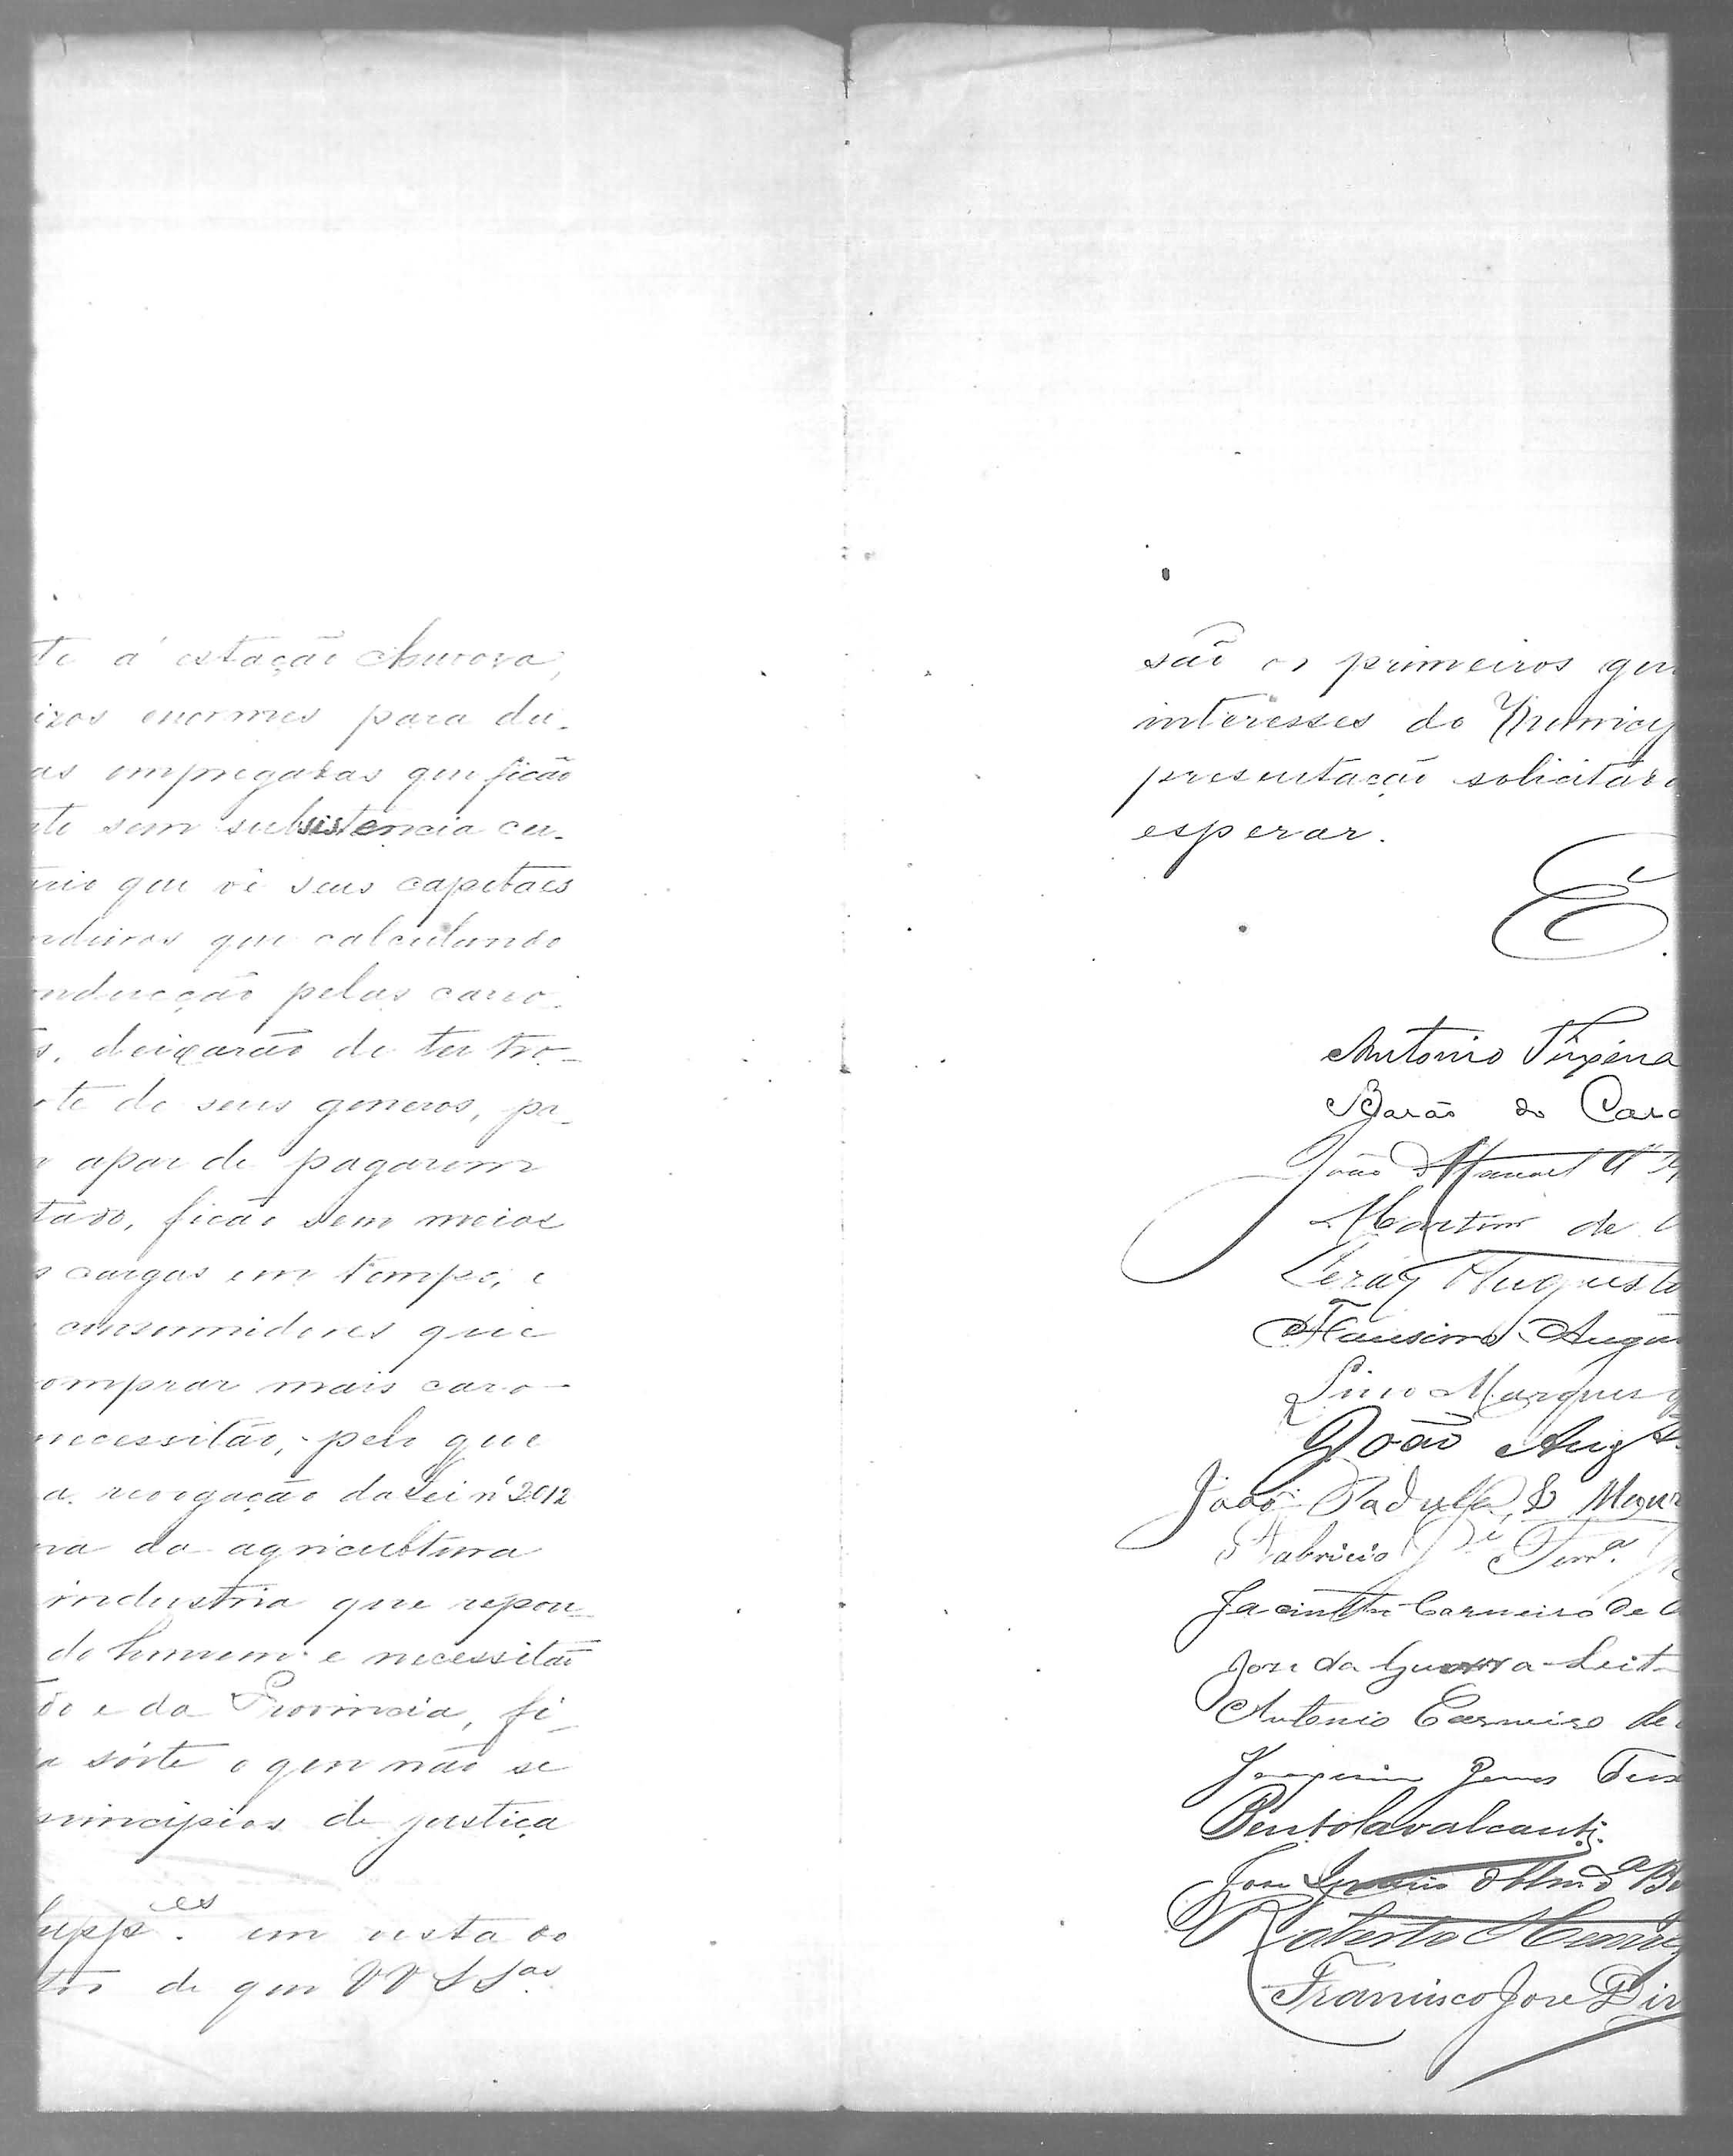 te á estação Aurora,
izos enormes para du-
as empregadas que ficão
te sem subsistencia cu-
rio que vê seus capitaes
ndeiros que calculando
nducção pelas carro-
s, deixarão de ter tro-
te de seus generos, pr-
apar de pagarem
tado, ficão sem meios
s cargas em tempo, e
consumidores que
omprar mais caro
necessitão, pelo que
a revogação da Lei nº 2012
ra da agricultura
industria que repou-
do homem e necessitão
do e da Provincia, fi-
a sórte o que não se
principios de justiça
Supp.es em vista do
tos de que VV SSas
são os primeiros que
interesses do Municip
presentação solicitão
esperar.
E.
Antonio
Barão do Cara
João Manoel
Martim de
Augusto
Fausino Augus
Lino Marques
João Augto
João Padulla, & Mour
Fabricio Ferra
Jacintho Carneiro de
José da Guerra Leit
Antonio Carneiro de
Joaquim Gomes Teix
Bento Cavalcanti.
José Ignacio
Roberto Henriq
Francisco José Dir